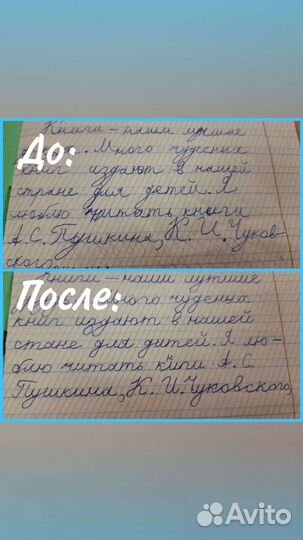 Книги – наши лучшие
До: . Много чудесных
книг издают в нашей
стране для детей. Я
люблю читать книги
А.С. Пушкина, К. И. Чуков-
ского
Книги – наши лучшие
После: много чудесных
книг издают в нашей
стане для дитей. Я лю-
блю читать кпиги А. С.
Пушкина, К. И. Чуковского,
Avito